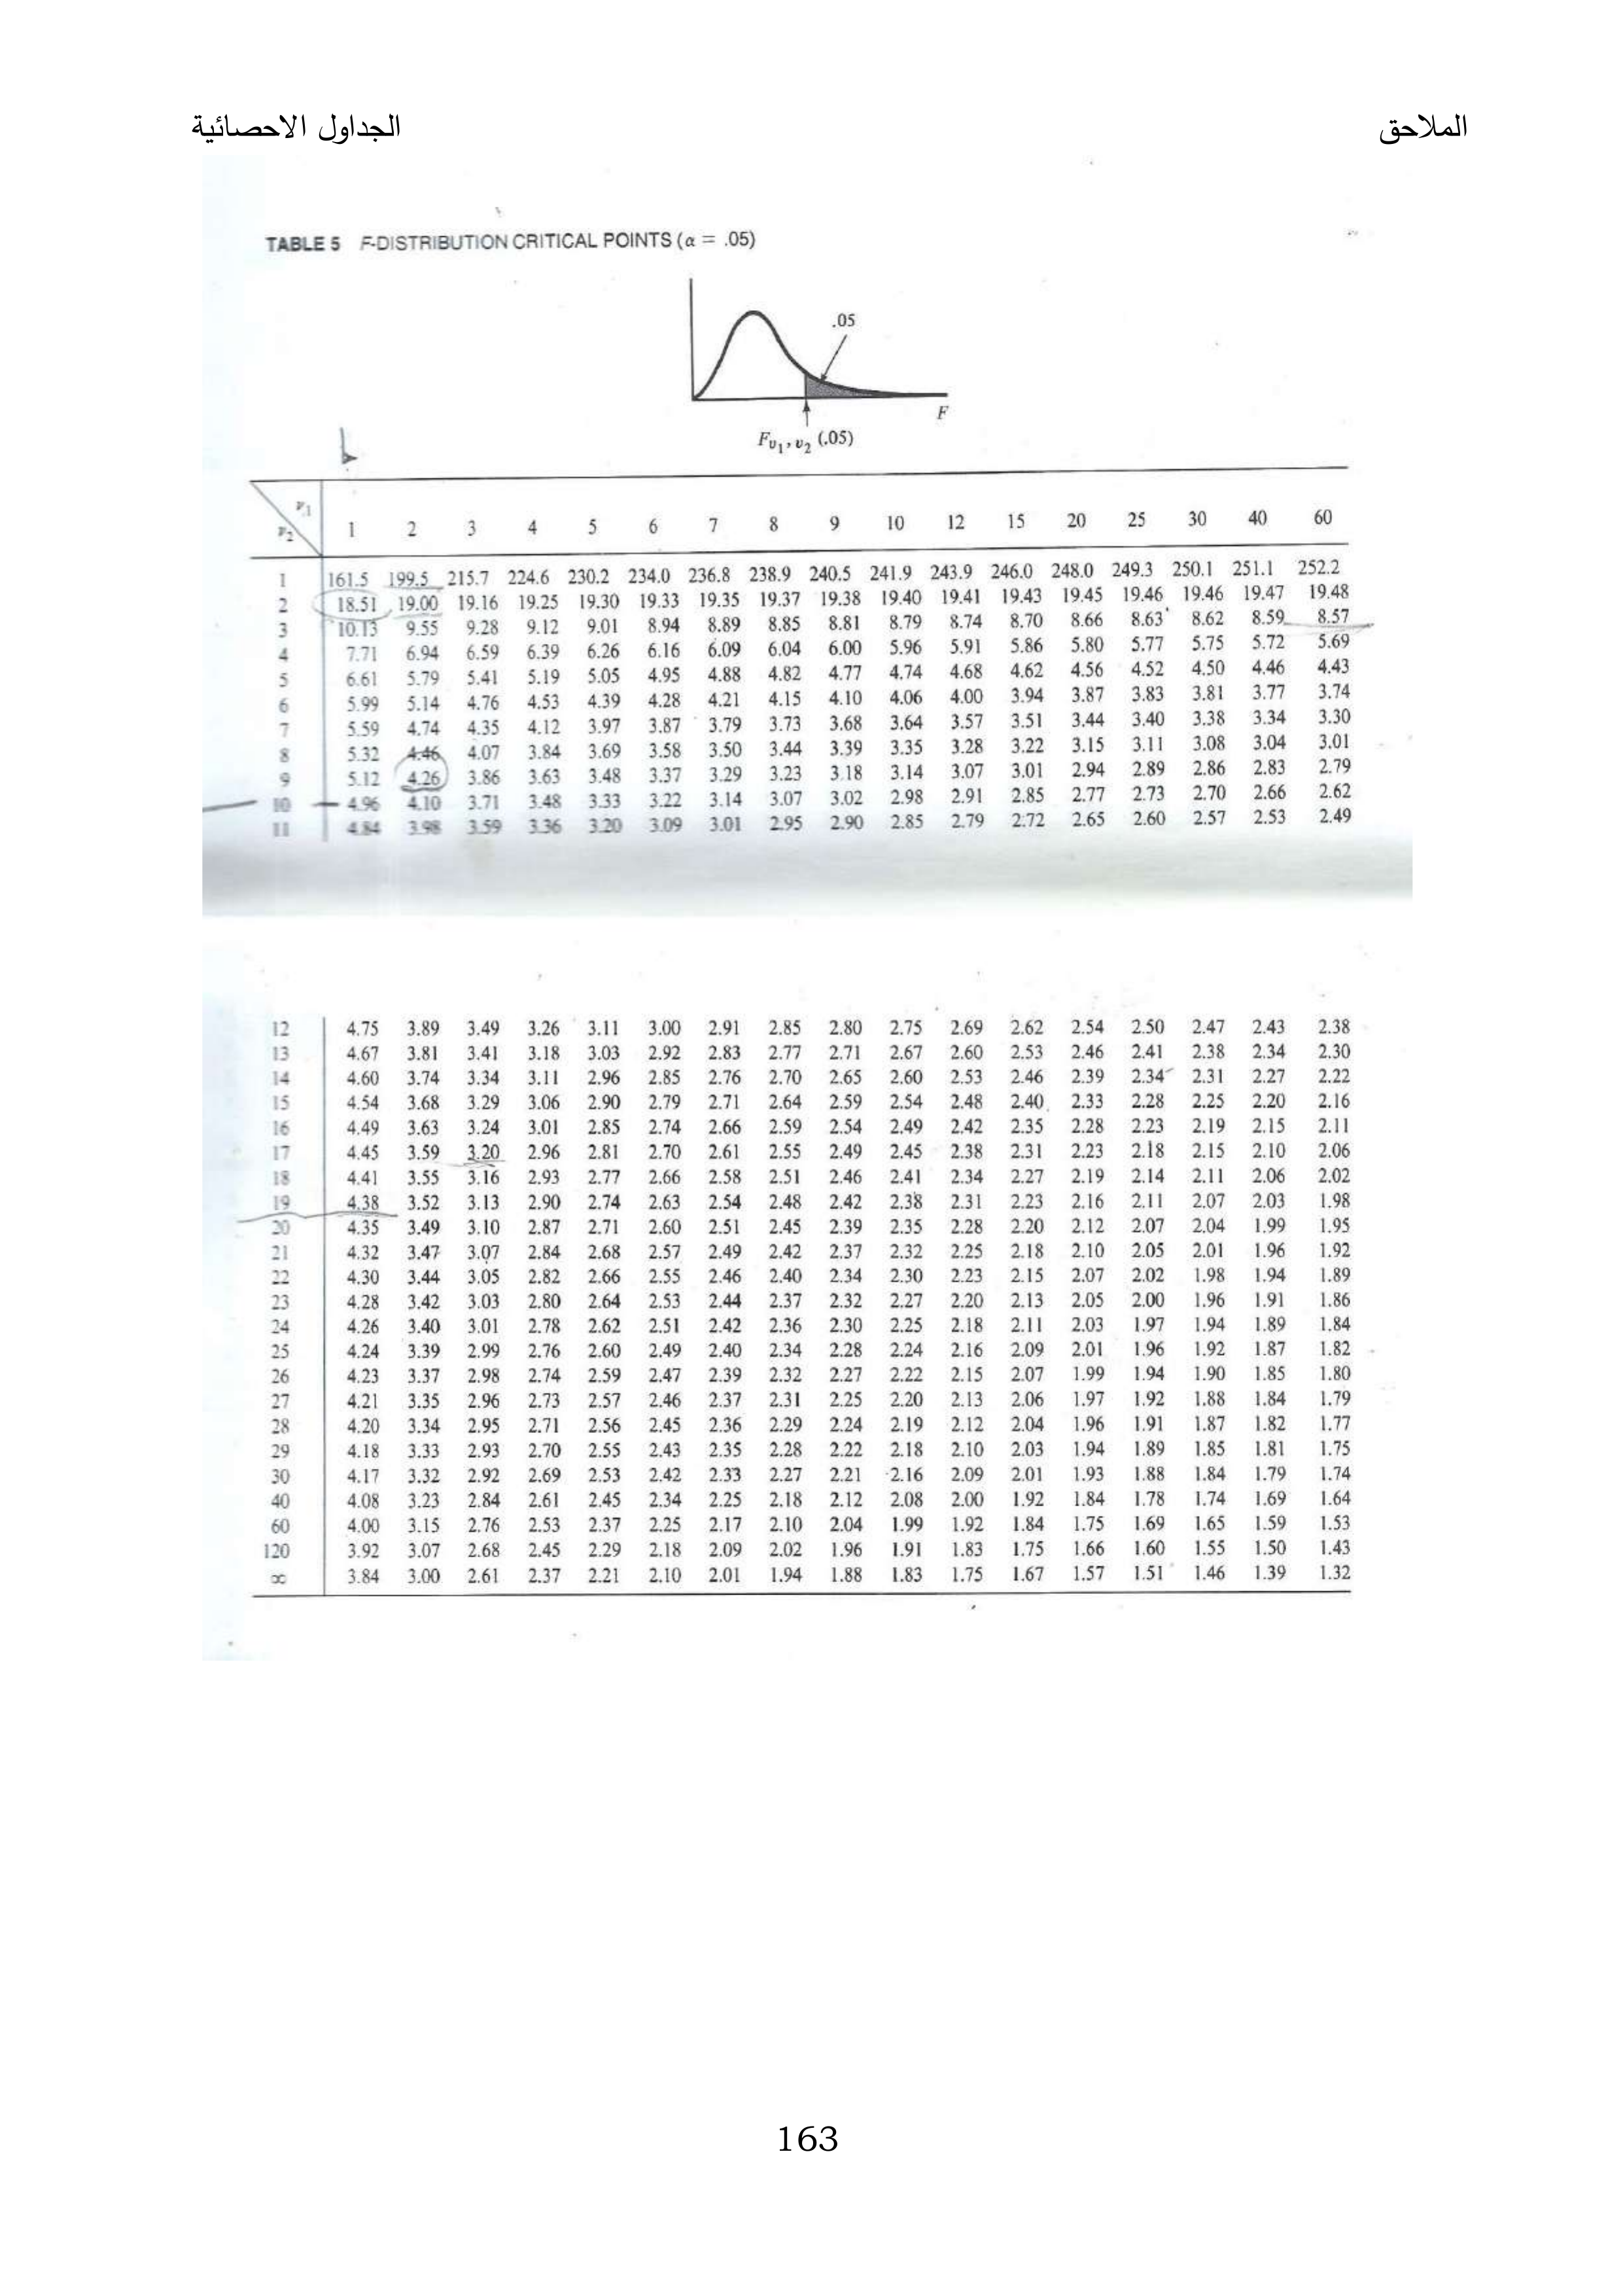 الملاحق الجداول الاحصائية
TABLE 5 F-DISTRIBUTION CRITICAL POINTS (α = .05)
.05
F
Fυ1, υ2 (.05)
ν1
ν2 1 2 3 4 5 6 7 8 9 10 12 15 20 25 30 40 60
1 161.5 199.5 215.7 224.6 230.2 234.0 236.8 238.9 240.5 241.9 243.9 246.0 248.0 249.3 250.1 251.1 252.2
2 18.51 19.00 19.16 19.25 19.30 19.33 19.35 19.37 19.38 19.40 19.41 19.43 19.45 19.46 19.46 19.47 19.48
3 10.13 9.55 9.28 9.12 9.01 8.94 8.89 8.85 8.81 8.79 8.74 8.70 8.66 8.63 8.62 8.59 8.57
4 7.71 6.94 6.59 6.39 6.26 6.16 6.09 6.04 6.00 5.96 5.91 5.86 5.80 5.77 5.75 5.72 5.69
5 6.61 5.79 5.41 5.19 5.05 4.95 4.88 4.82 4.77 4.74 4.68 4.62 4.56 4.52 4.50 4.46 4.43
6 5.99 5.14 4.76 4.53 4.39 4.28 4.21 4.15 4.10 4.06 4.00 3.94 3.87 3.83 3.81 3.77 3.74
7 5.59 4.74 4.35 4.12 3.97 3.87 3.79 3.73 3.68 3.64 3.57 3.51 3.44 3.40 3.38 3.34 3.30
8 5.32 4.46 4.07 3.84 3.69 3.58 3.50 3.44 3.39 3.35 3.28 3.22 3.15 3.11 3.08 3.04 3.01
9 5.12 4.26 3.86 3.63 3.48 3.37 3.29 3.23 3.18 3.14 3.07 3.01 2.94 2.89 2.86 2.83 2.79
10 4.96 4.10 3.71 3.48 3.33 3.22 3.14 3.07 3.02 2.98 2.91 2.85 2.77 2.73 2.70 2.66 2.62
11 4.84 3.98 3.59 3.36 3.20 3.09 3.01 2.95 2.90 2.85 2.79 2.72 2.65 2.60 2.57 2.53 2.49
12 4.75 3.89 3.49 3.26 3.11 3.00 2.91 2.85 2.80 2.75 2.69 2.62 2.54 2.50 2.47 2.43 2.38
13 4.67 3.81 3.41 3.18 3.03 2.92 2.83 2.77 2.71 2.67 2.60 2.53 2.46 2.41 2.38 2.34 2.30
14 4.60 3.74 3.34 3.11 2.96 2.85 2.76 2.70 2.65 2.60 2.53 2.46 2.39 2.34 2.31 2.27 2.22
15 4.54 3.68 3.29 3.06 2.90 2.79 2.71 2.64 2.59 2.54 2.48 2.40 2.33 2.28 2.25 2.20 2.16
16 4.49 3.63 3.24 3.01 2.85 2.74 2.66 2.59 2.54 2.49 2.42 2.35 2.28 2.23 2.19 2.15 2.11
17 4.45 3.59 3.20 2.96 2.81 2.70 2.61 2.55 2.49 2.45 2.38 2.31 2.23 2.18 2.15 2.10 2.06
18 4.41 3.55 3.16 2.93 2.77 2.66 2.58 2.51 2.46 2.41 2.34 2.27 2.19 2.14 2.11 2.06 2.02
19 4.38 3.52 3.13 2.90 2.74 2.63 2.54 2.48 2.42 2.38 2.31 2.23 2.16 2.11 2.07 2.03 1.98
20 4.35 3.49 3.10 2.87 2.71 2.60 2.51 2.45 2.39 2.35 2.28 2.20 2.12 2.07 2.04 1.99 1.95
21 4.32 3.47 3.07 2.84 2.68 2.57 2.49 2.42 2.37 2.32 2.25 2.18 2.10 2.05 2.01 1.96 1.92
22 4.30 3.44 3.05 2.82 2.66 2.55 2.46 2.40 2.34 2.30 2.23 2.15 2.07 2.02 1.98 1.94 1.89
23 4.28 3.42 3.03 2.80 2.64 2.53 2.44 2.37 2.32 2.27 2.20 2.13 2.05 2.00 1.96 1.91 1.86
24 4.26 3.40 3.01 2.78 2.62 2.51 2.42 2.36 2.30 2.25 2.18 2.11 2.03 1.97 1.94 1.89 1.84
25 4.24 3.39 2.99 2.76 2.60 2.49 2.40 2.34 2.28 2.24 2.16 2.09 2.01 1.96 1.92 1.87 1.82
26 4.23 3.37 2.98 2.74 2.59 2.47 2.39 2.32 2.27 2.22 2.15 2.07 1.99 1.94 1.90 1.85 1.80
27 4.21 3.35 2.96 2.73 2.57 2.46 2.37 2.31 2.25 2.20 2.13 2.06 1.97 1.92 1.88 1.84 1.79
28 4.20 3.34 2.95 2.71 2.56 2.45 2.36 2.29 2.24 2.19 2.12 2.04 1.96 1.91 1.87 1.82 1.77
29 4.18 3.33 2.93 2.70 2.55 2.43 2.35 2.28 2.22 2.18 2.10 2.03 1.94 1.89 1.85 1.81 1.75
30 4.17 3.32 2.92 2.69 2.53 2.42 2.33 2.27 2.21 2.16 2.09 2.01 1.93 1.88 1.84 1.79 1.74
40 4.08 3.23 2.84 2.61 2.45 2.34 2.25 2.18 2.12 2.08 2.00 1.92 1.84 1.78 1.74 1.69 1.64
60 4.00 3.15 2.76 2.53 2.37 2.25 2.17 2.10 2.04 1.99 1.92 1.84 1.75 1.69 1.65 1.59 1.53
120 3.92 3.07 2.68 2.45 2.29 2.18 2.09 2.02 1.96 1.91 1.83 1.75 1.66 1.60 1.55 1.50 1.43
∞ 3.84 3.00 2.61 2.37 2.21 2.10 2.01 1.94 1.88 1.83 1.75 1.67 1.57 1.51 1.46 1.39 1.32
163